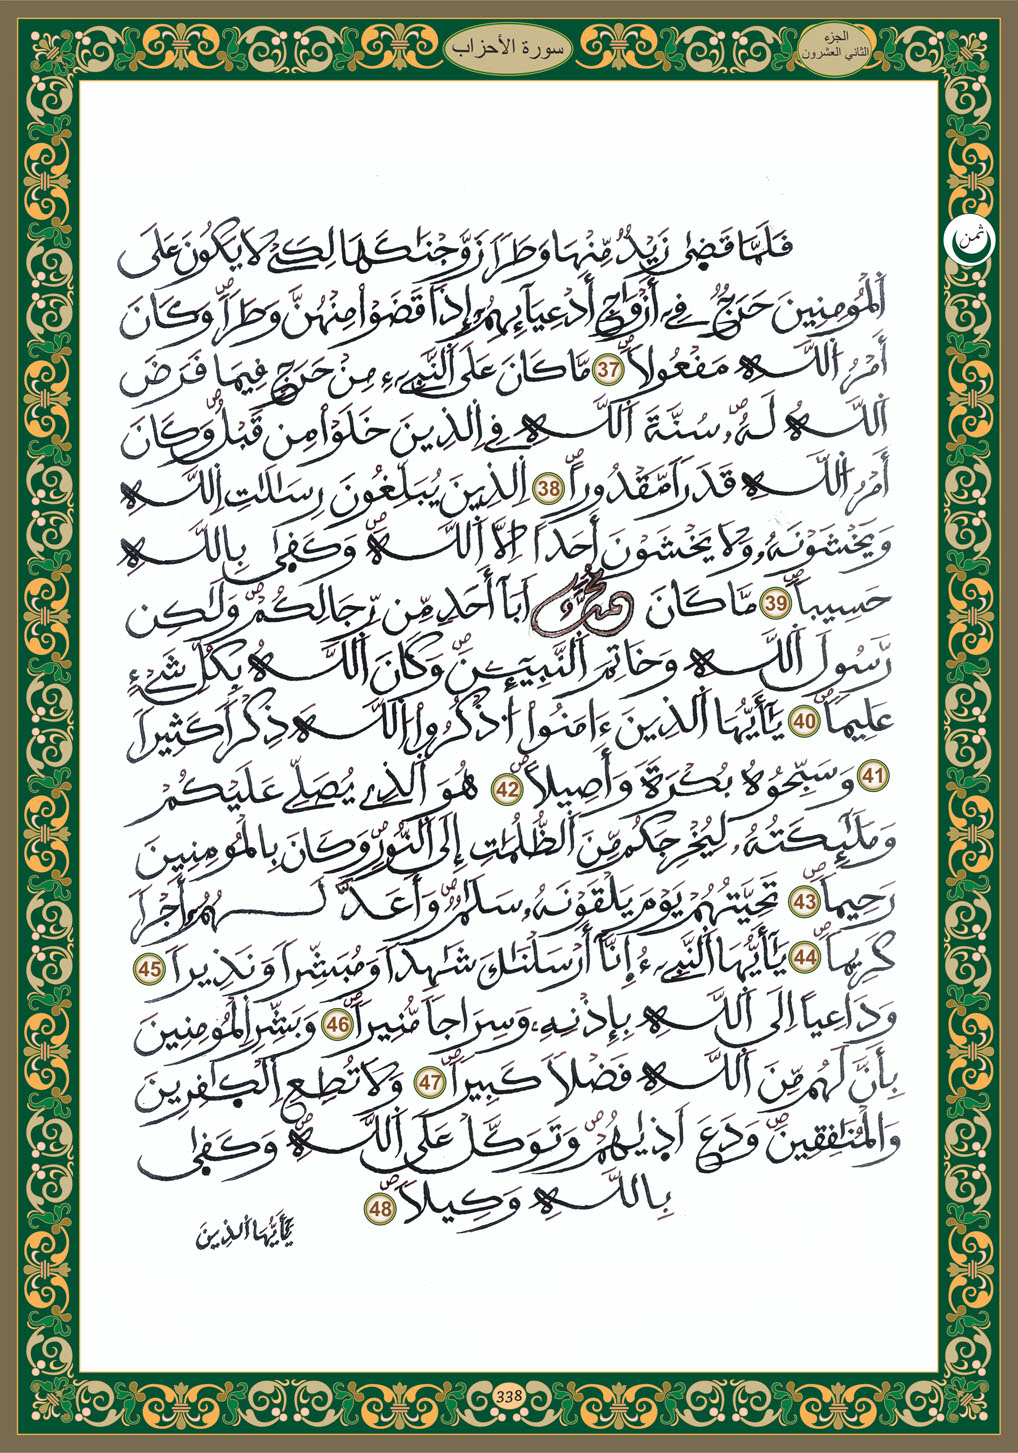 الجزء
الثاني العشرون
سورة الأحزاب
ثمن
فَلَمَّا قَضىٰ زَيْدٌ مِّنْهَا وَطَراً زَوَّجْنَٰكَهَا لِكَےْ لَا يَكُونَ عَلَى
اَلْمُومِنِينَ حَرَجٌ فِےٓ أَزْوَٰجِ أَدْعِيَآئِهِمُۥٓ إِذَا قَضَوْا۟ مِنْهُنَّ وَطَراًۖ وَكَانَ
أَمْرُ اُ۬للَّهِ مَفْعُولاًۖ 37 مَّا كَانَ عَلَى اَ۬لنَّبِےٓءِ مِنْ حَرَجٍ فِيمَا فَرَضَ
اَ۬للَّهُ لَهُۥۖ سُنَّةَ اَ۬للَّهِ فِے اِ۬لذِينَ خَلَوْا۟ مِن قَبْلُۖ وَكَانَ
أَمْرُ اُ۬للَّهِ قَدَراً مَّقْدُوراًۖ 38 اِ۬لذِينَ يُبَلِّغُونَ رِسَٰلَٰتِ اِ۬للَّهِ
وَيَخْشَوْنَهُۥ وَلَا يَخْشَوْنَ أَحَداً اِلَّا اَ۬للَّهَۖ وَكَفىٰ بِاللَّهِ
حَسِيباًۖ 39 مَّا كَانَ مُحَمَّدٌ اَبَآ أَحَدٍ مِّن رِّجَالِكُمْۖ وَلَٰكِن
رَّسُولَ اَ۬للَّهِ وَخَاتِمَ اَ۬لنَّبِيٓـِٕينَۖ وَكَانَ اَ۬للَّهُ بِكُلِّ شَےْءٍ
عَلِيماًۖ 40 يَٰٓأَيُّهَا اَ۬لذِينَ ءَامَنُوا۟ اُ۟ذْكُرُوا۟ اُ۬للَّهَ ذِكْراً كَثِيراً
41 وَسَبِّحُوهُ بُكْرَةً وَأَصِيلاًۖ 42 هُوَ اَ۬لذِے يُصَلِّے عَلَيْكُمْ
وَمَلَٰٓئِكَتُهُۥ لِيُخْرِجَكُم مِّنَ اَ۬لظُّلُمَٰتِ إِلَى اَ۬لنُّورِۖ وَكَانَ بِالْمُومِنِينَ
رَحِيماًۖ 43 تَحِيَّتُهُمْ يَوْمَ يَلْقَوْنَهُۥ سَلَٰمٌۖ وَأَعَدَّ لَهُمُۥٓ أَجْراً
كَرِيماًۖ 44 يَٰٓأَيُّهَا اَ۬لنَّبِےٓءُ إِنَّآ أَرْسَلْنَٰكَ شَٰهِداً وَمُبَشِّراً وَنَذِيراً 45
وَدَاعِياً اِلَى اَ۬للَّهِ بِإِذْنِهِۦ وَسِرَاجاً مُّنِيراًۖ 46 وَبَشِّرِ اِ۬لْمُومِنِينَ
بِأَنَّ لَهُم مِّنَ اَ۬للَّهِ فَضْلاً كَبِيراًۖ 47 وَلَا تُطِعِ اِ۬لْكٰفِرِينَ
وَالْمُنَٰفِقِينَۖ وَدَعَ اَذٰيٰهُمْۖ وَتَوَكَّلْ عَلَى اَ۬للَّهِۖ وَكَفىٰ
بِاللَّهِ وَكِيلاًۖ 48
يَٰٓأَيُّهَا اَ۬لذِينَ
338